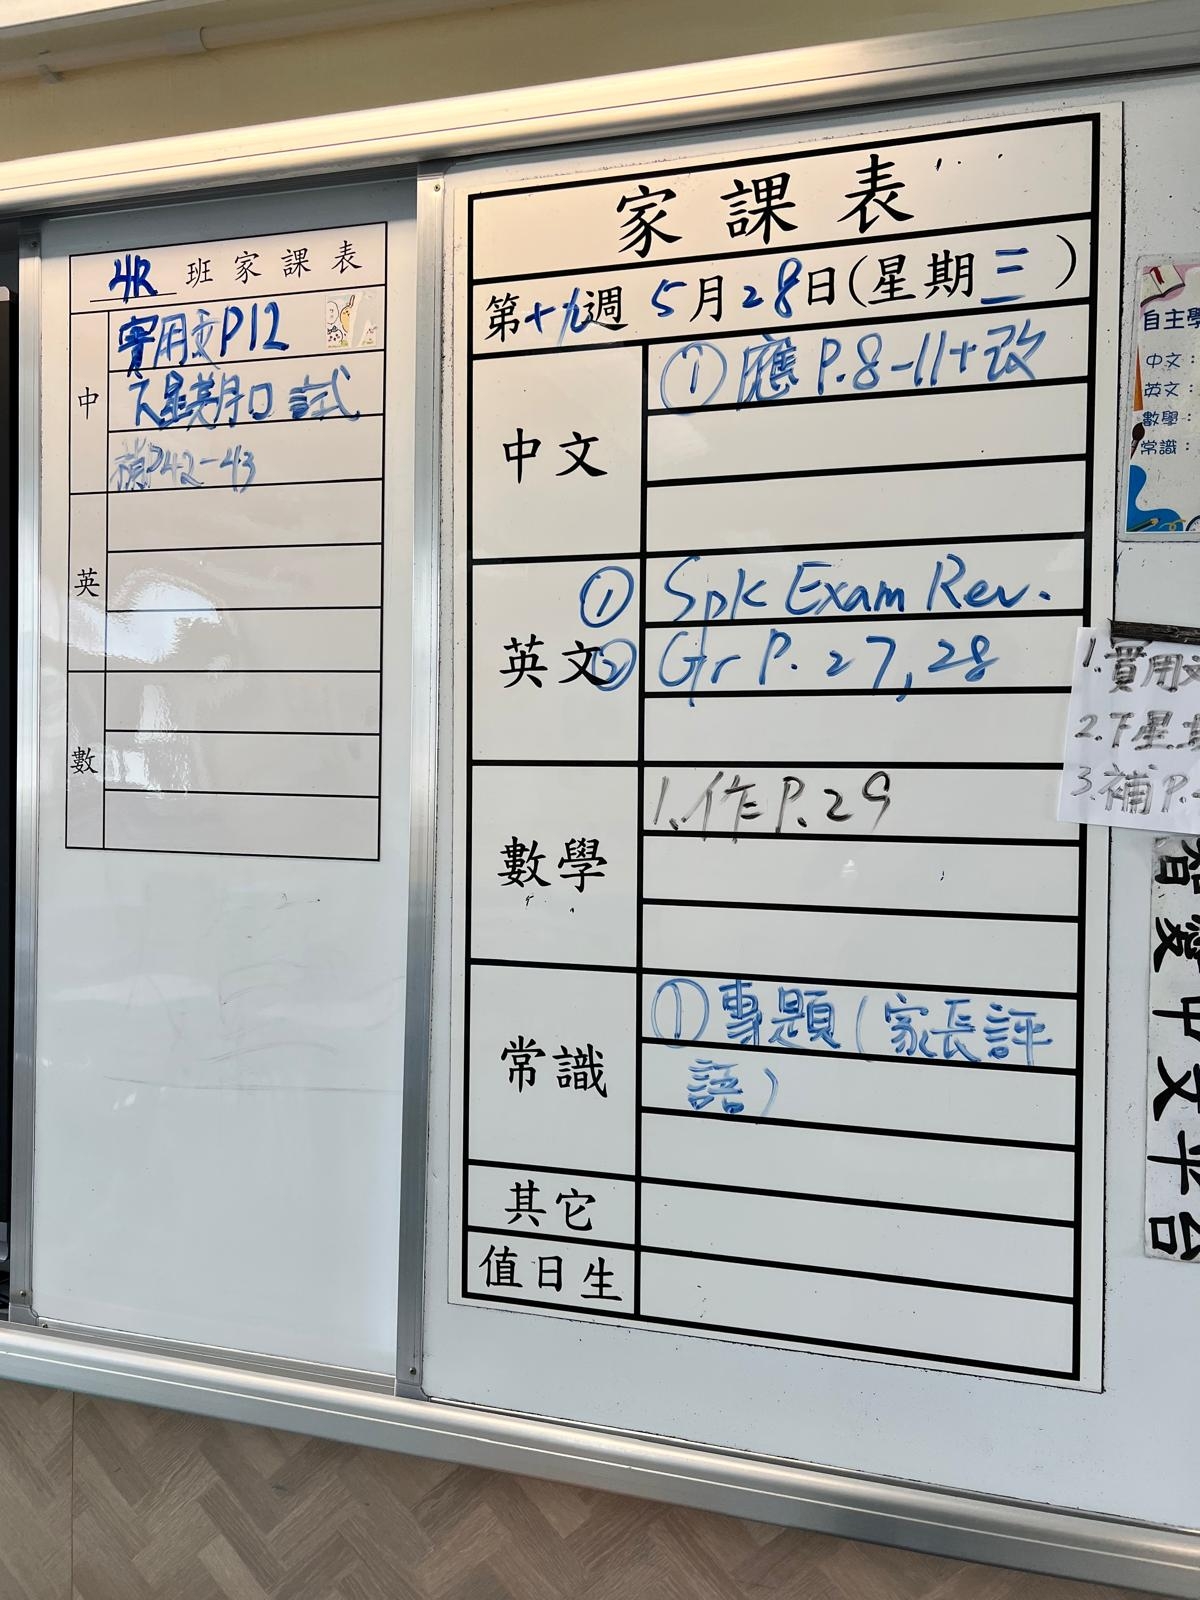 4R 班家課表
中
實用文P12
下星期口試
補P42-43
英
數
家課表
第十九週 5月28日(星期三)
中文
① 應 P.8-11+改
英文
① Spk Exam Rev.
② Gr P. 27, 28
數學
1. 作 P. 29
常識
① 專題 (家長評
語)
其它
值日生
自主學
中文：
英文：
數學：
常識：
1. 實用文
2. 下星
3. 補 P.
愛中文平台